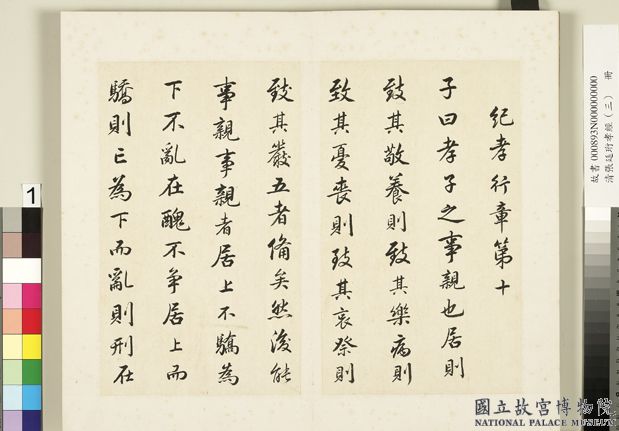 紀孝行章第十
子曰孝子之事親也居則
致其敬養則致其樂病則
致其憂喪則致其哀祭則
致其嚴五者備矣然後能
事親事親者居上不驕為
下不亂在醜不爭居上而
驕則亡為下而亂則刑在
故書000893N000000000
清張廷珩孝經（三） 冊
1
國立故宮博物院
NATIONAL PALACE MUSEUM